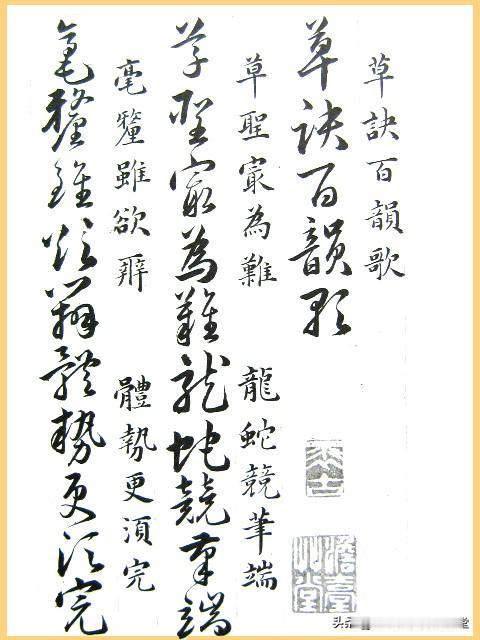 草訣百韻歌
草訣百韻歌
草聖㝡為難
龍蛇競筆端
草聖㝡為難龍蛇競筆端
毫釐雖欲辧
體勢更須完
毫釐雖欲辧體勢更須完